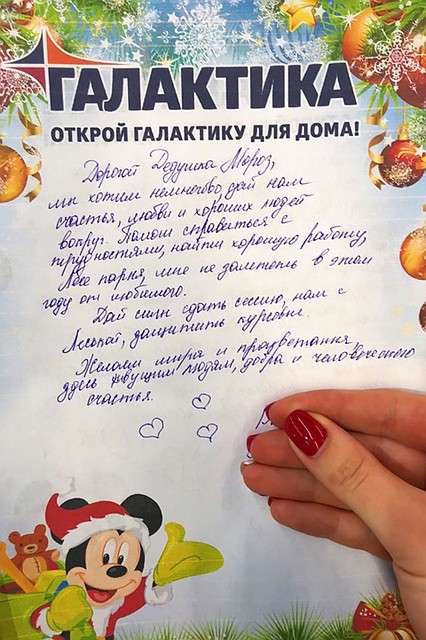 ГАЛАКТИКА
ОТКРОЙ ГАЛАКТИКУ ДЛЯ ДОМА!
Дорогой Дедушка Мороз,
мы хотим немногово, дай нам
счастья, любви и хороших людей
вокруг. Помоги справиться с
трудностями, найти хорошую работу,
парня, мне не залететь в этом
году от любимого.
Дай сил сдать сессию, нам с
защитить курсовые.
Желаем мира и процветания,
здесь живущим людям, добра и человеческого
счастья.